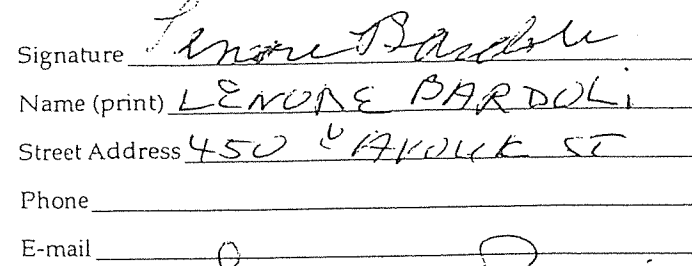 Signature Lenore Bardoli
Name (print) LENORE BARDOLi
Street Address 450 ST
Phone
E-mail